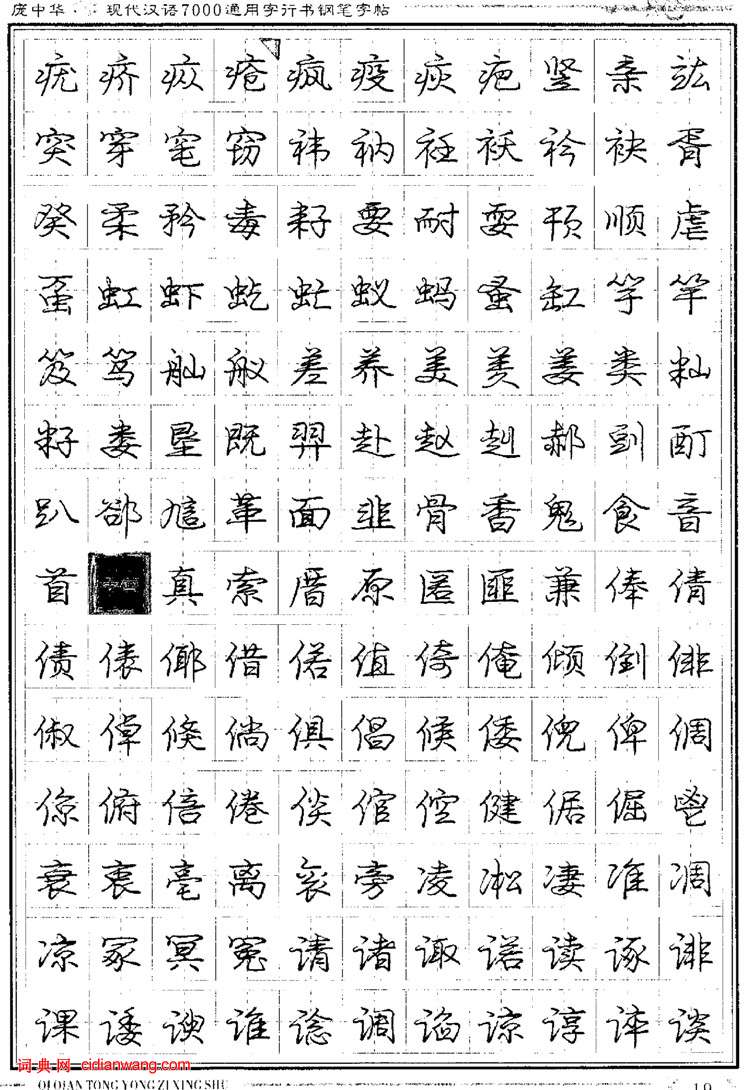 庞中华·:现代汉语7000通用字行书钢笔字帖
疣疥疭疮疯疫疢疤竖亲竑
突穿窀窃袆衲衽袄衿袂胥
癸柔矜毒耔要耐耍顸顺虐
虿虹虾虼虻蚁蚂蚤缸竽竿
笈笃舢舣差养美羑姜类籼
籽娄垦既羿赴赵赳郝剅酊
趴郤訄革面韭骨香鬼食音
首真索厝原匿匪兼俸倩
债俵倻借偌值倚俺倾倒俳
俶倬倏倘俱倡候倭倪俾倜
倞俯倍倦倓倌倥健倨倔鬯
衰衷亳离衮旁凌凇凄准凋
凉冢冥冤请诸诹诺读诼诽
课诿谀谁谂调谄谅谆谇谈
词典网 cidianwang.com
QI QIAN TONG YONG ZI XING SHU
19